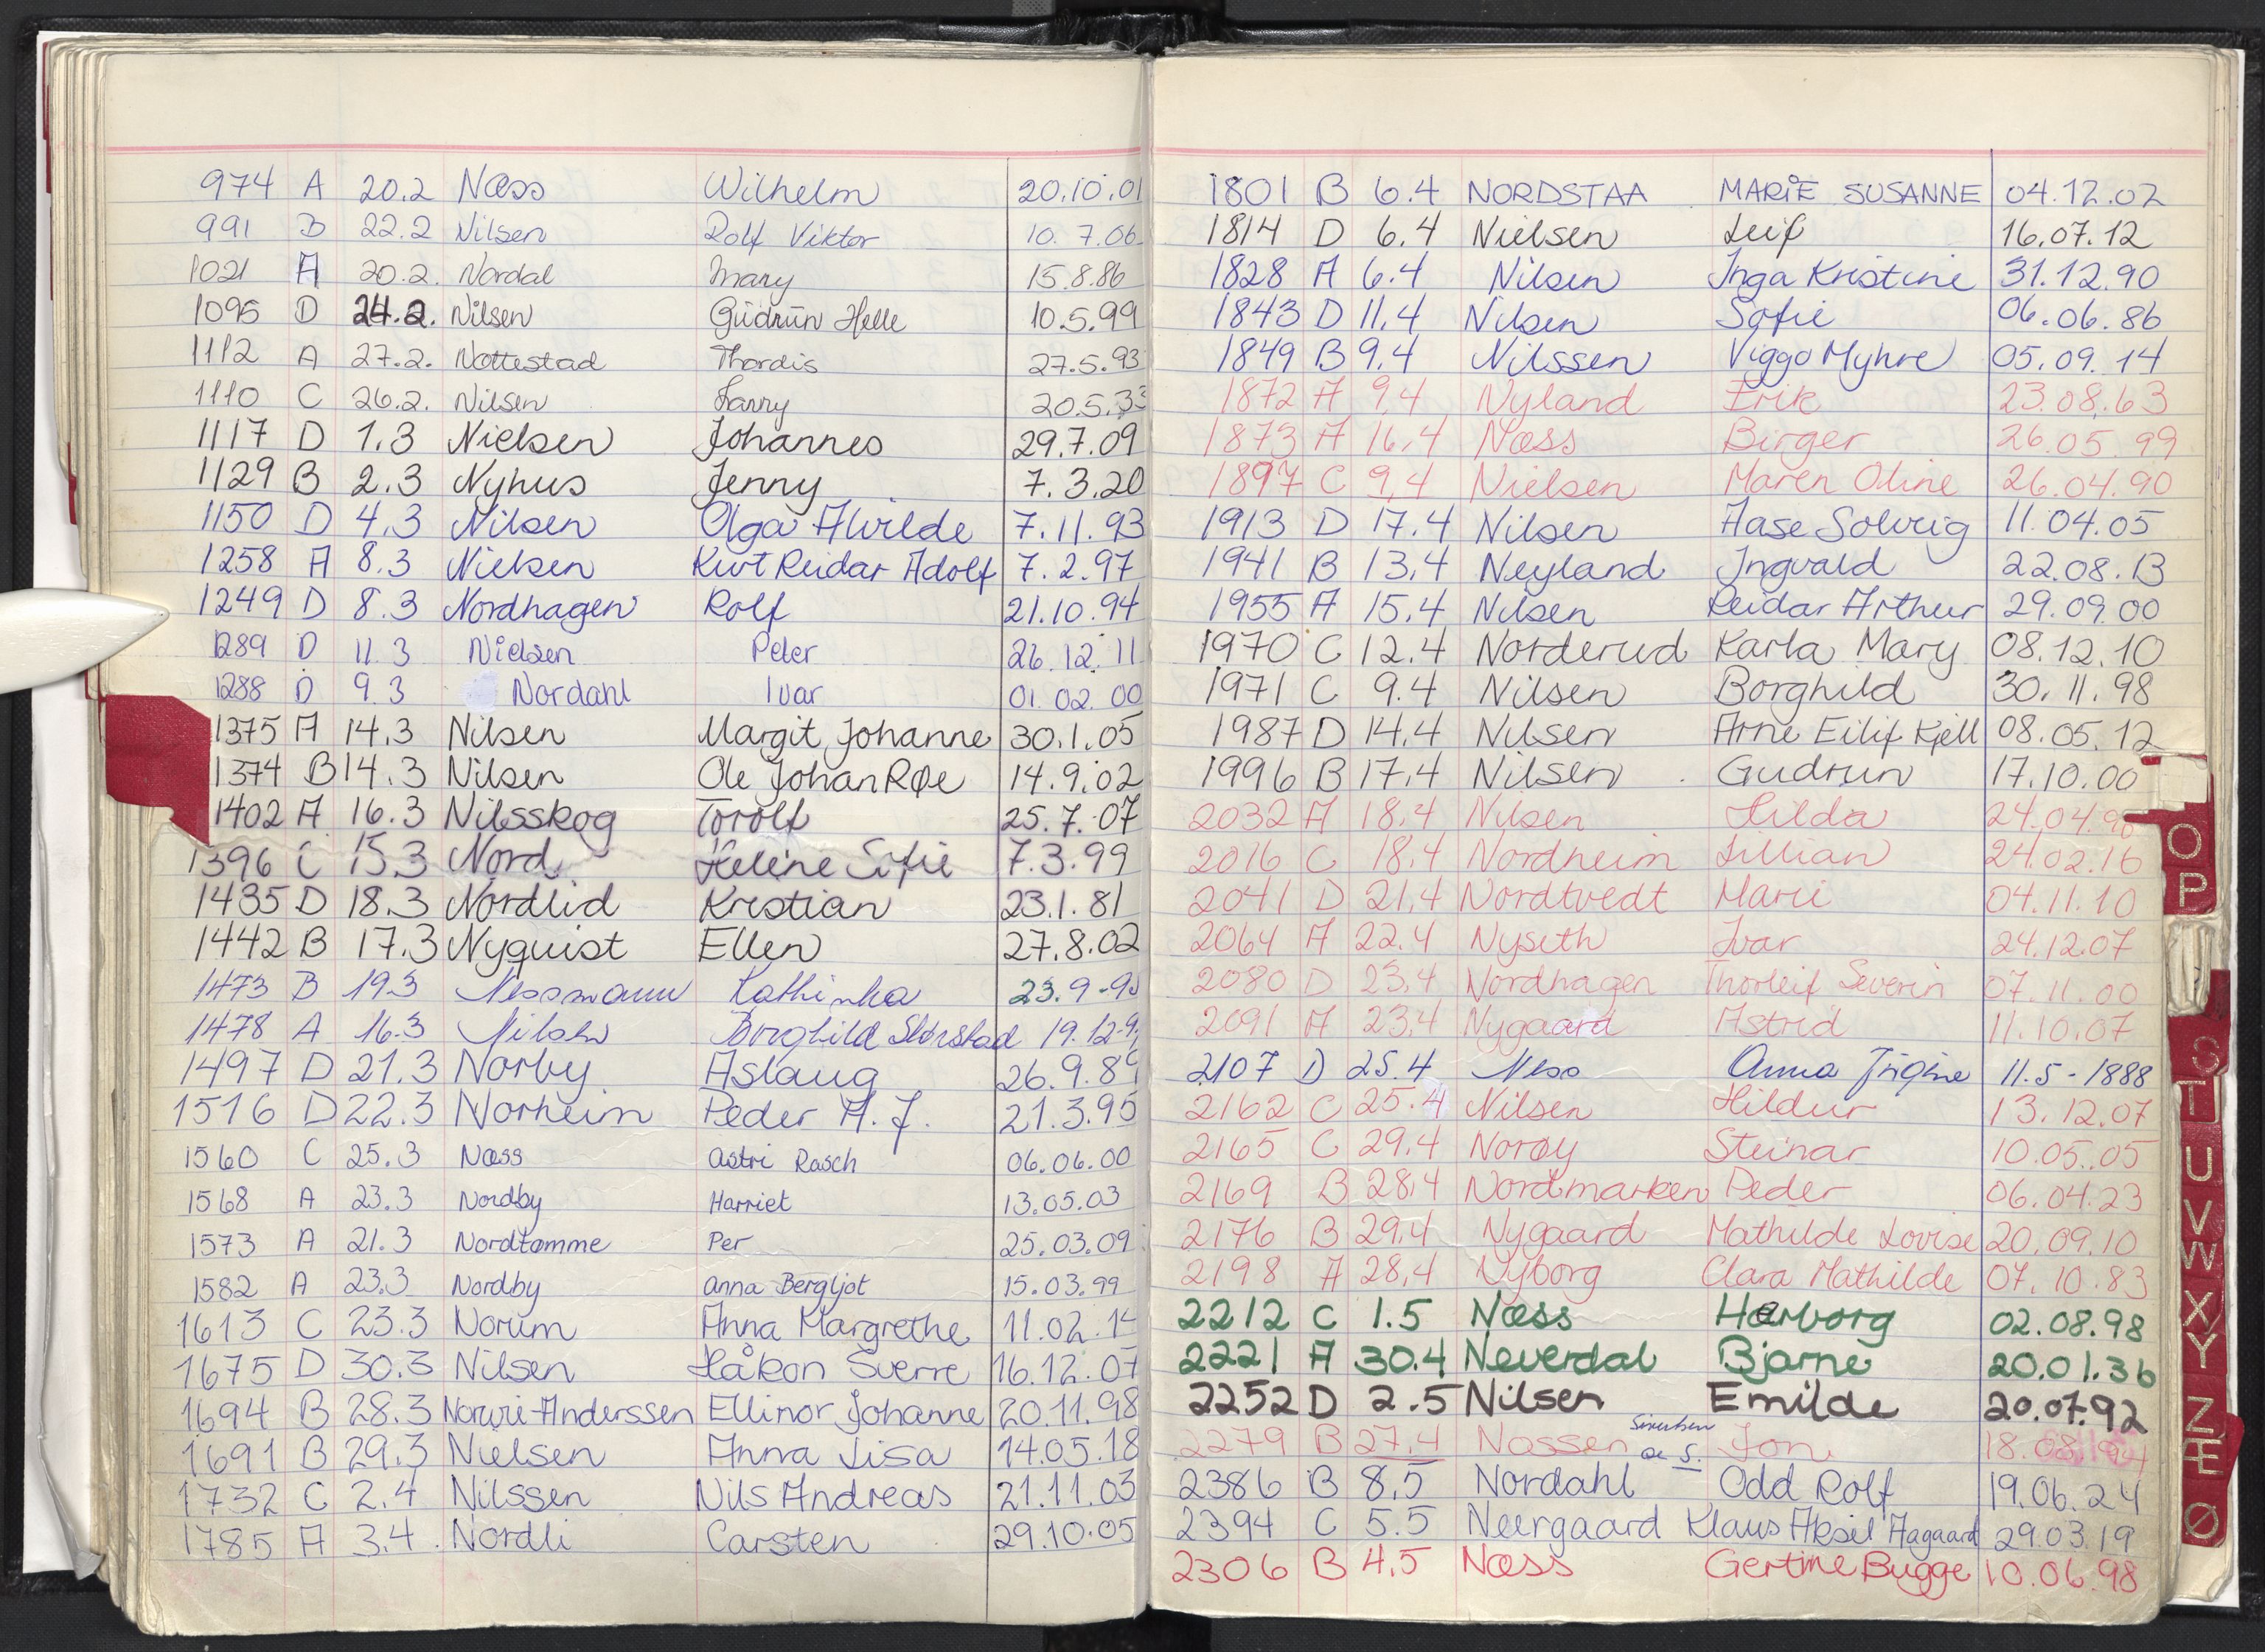 974 A 20.2 Næss Wilhelm 20.10.01
991 B 22.2 Nilsen Rolf Viktor 10.7.06
1021 A 20.2. Nordal Mary 15.8.86
1095 D 24.2. Nilsen Gudrun Helle 10.5.99
1112 A 27.2. Nottestad Thordis 27.5.93
1110 C 26.2. Nilsen Fanny 20.5.33
1117 D 1.3 Nielsen Johannes 29.7.09
1129 B 2.3 Nyhus Jenny 7.3.20
1150 D 4.3 Nilsen Olga Alvilde 7.11.93
1258 A 8.3 Nielsen Kurt Reidar Adolf 7.2.97
1249 D 8.3 Nordhagen Rolf 21.10.94
1289 D 11.3 Nielsen Peter 26.12.11
1288 D 9.3 Nordahl Ivar 01.02.00
1375 A 14.3 Nilsen Margit Johanne 30.1.05
1374 B 14.3 Nilsen Ole Johan Røe 14.9.02
1402 A 16.3 Nilsskog Torolf 25.7.07
1396 C 15.3 Nord Helene Sofie 7.3.99
1435 D 18.3 Nordlid Kristian 23.1.81
1442 B 17.3 Nyquist Ellen 27.8.02
1473 B 19.3 Nessmann Kathinka
1478 A 16.3 Nilsen Borghild Storstad
1497 D 21.3 Norby Aslaug
1516 D 22.3 Norheim Peder A.J. 21.3.95
1560 C 25.3 Næss Astri Rasch 06.06.00
1568 A 23.3 Nordby Harriet 13.05.03
1573 A 21.3 Nordtømme Per 25.03.09
1582 A 23.3 Nordby Anna Bergljot 15.03.99
1613 C 23.3 Norum Anna Margrethe 11.02.14
1675 D 30.3 Nilsen Håkon Sverre 16.12.07
1694 B 28.3 Norwie-Anderssen Ellinor Johanne 20.11.98
1691 B 29.3 Nielsen Anna Lisa 14.05.18
1732 C 2.4 Nilssen Nils Andreas 21.11.03
1785 A 3.4 Nordli Carsten 29.10.05
1801 B 6.4 NORDSTAA MARIE SUSANNE 04.12.02
1814 D 6.4 Nielsen Leif 16.07.12
1828 A 6.4 Nilsen Inga Kristine 31.12.90
1843 D 11.4 Nilsen Sofie 06.06.86
1849 B 9.4 Nilssen Viggo Myhre 05.09.14
1872 A 9.4 Nyland Erik 23.08.63
1873 A 16.4 Næss Birger 26.05.99
1897 C 9.4 Nielsen Maren Oline 26.04.90
1913 D 17.4 Nilsen Aase Solveig 11.04.05
1941 B 13.4 Neyland Ingvald 22.08.13
1955 A 15.4 Nilsen Reidar Arthur 29.09.00
1970 C 12.4 Norderud Karla Mary 08.12.10
1971 C 9.4 Nilsen Borghild 30.11.98
1987 D 14.4 Nilsen Arne Eilif Kjell 08.05.12
1996 B 17.4 Nilsen Gudrun 17.10.00
2032 A 18.4 Nilsen Hilda
2016 C 18.4 Nordheim Lillian 24.02.16
2041 D 21.4 Nordtvedt Marie 04.11.10
2064 A 22.4 Nyseth Ivar 24.12.07
2080 D 23.4 Nordhagen Thorleif Severin 07.11.00
2091 A 23.4 Nygaard Astrid 11.10.07
2107 D 25.4 Ness Anna Jørgine 11.5-1888
2162 C 25.4 Nilsen Hildur 13.12.07
2165 C 29.4 Norøy Steinar 10.05.05
2169 B 28.4 Nordmarken Peder 06.04.23
2176 B 29.4 Nygaard Mathilde Lovise 20.09.10
2198 A 28.4 Nyborg Clara Mathilde 07.10.83
2212 C 1.5 Næss Harborg 02.08.98
2221 A 30.4 Neverdal Bjarne 20.01.36
2252 D 2.5 Nilsen Emilde 20.07.92
2279 B 27.4 Nossen se S. Jon
2386 B 8.5 Nordahl Odd Rolf 19.06.24
2394 C 5.5 Neergaard Klaus Aksel Aagaard 29.03.19
2306 B 4.5 Næss Gertine Bugge 10.06.98
O
P
S
T
U
V
W
X
Y
Z
Æ
Ø